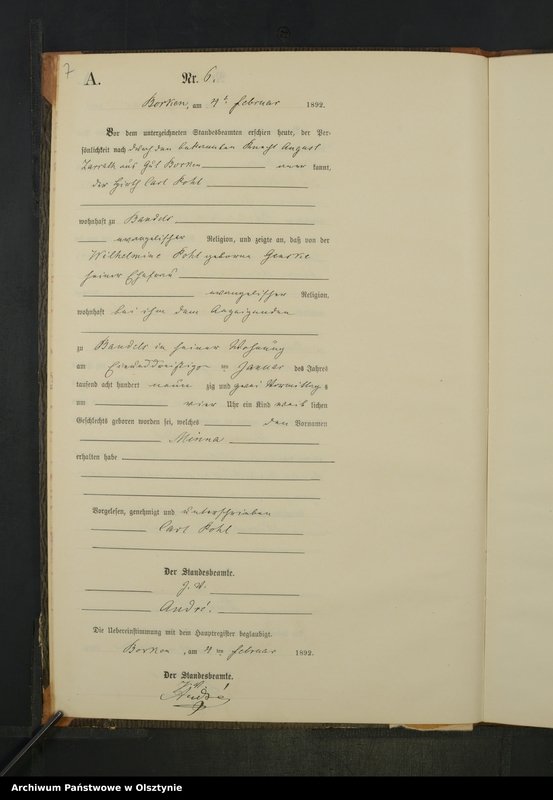 7
A.
Nr. 6.
Borken, am 4ten Februar 1892.
Vor dem unterzeichneten Standesbeamten erschien heute, der Per-
sönlichkeit nach durch den bekannten Knecht August
aus Gut Borken kannt,
der Hirth Carl Pohl
wohnhaft zu Bandels
evangelischer Religion, und zeigte an, daß von der
Wilhelmine Pohl geborne
seiner Ehefrau
evangelischer Religion,
wohnhaft bei ihm dem Anzeigenden
zu Bandels in seiner Wohnung
am Einunddreißigsten Januar des Jahres
tausend acht hundert neun zig und zwei Vormittags
um vier Uhr ein Kind weib lichen
Geschlechts geboren worden sei, welches den Vornamen
Minna
erhalten habe
Vorgelesen, genehmigt und unterschrieben
Carl Pohl
Der Standesbeamte.
J. V.
André.
Die Uebereinstimmung mit dem Hauptregister beglaubigt.
Borken, am 4ten Februar 1892.
Der Standesbeamte.
J. V.
André
Archiwum Państwowe w Olsztynie